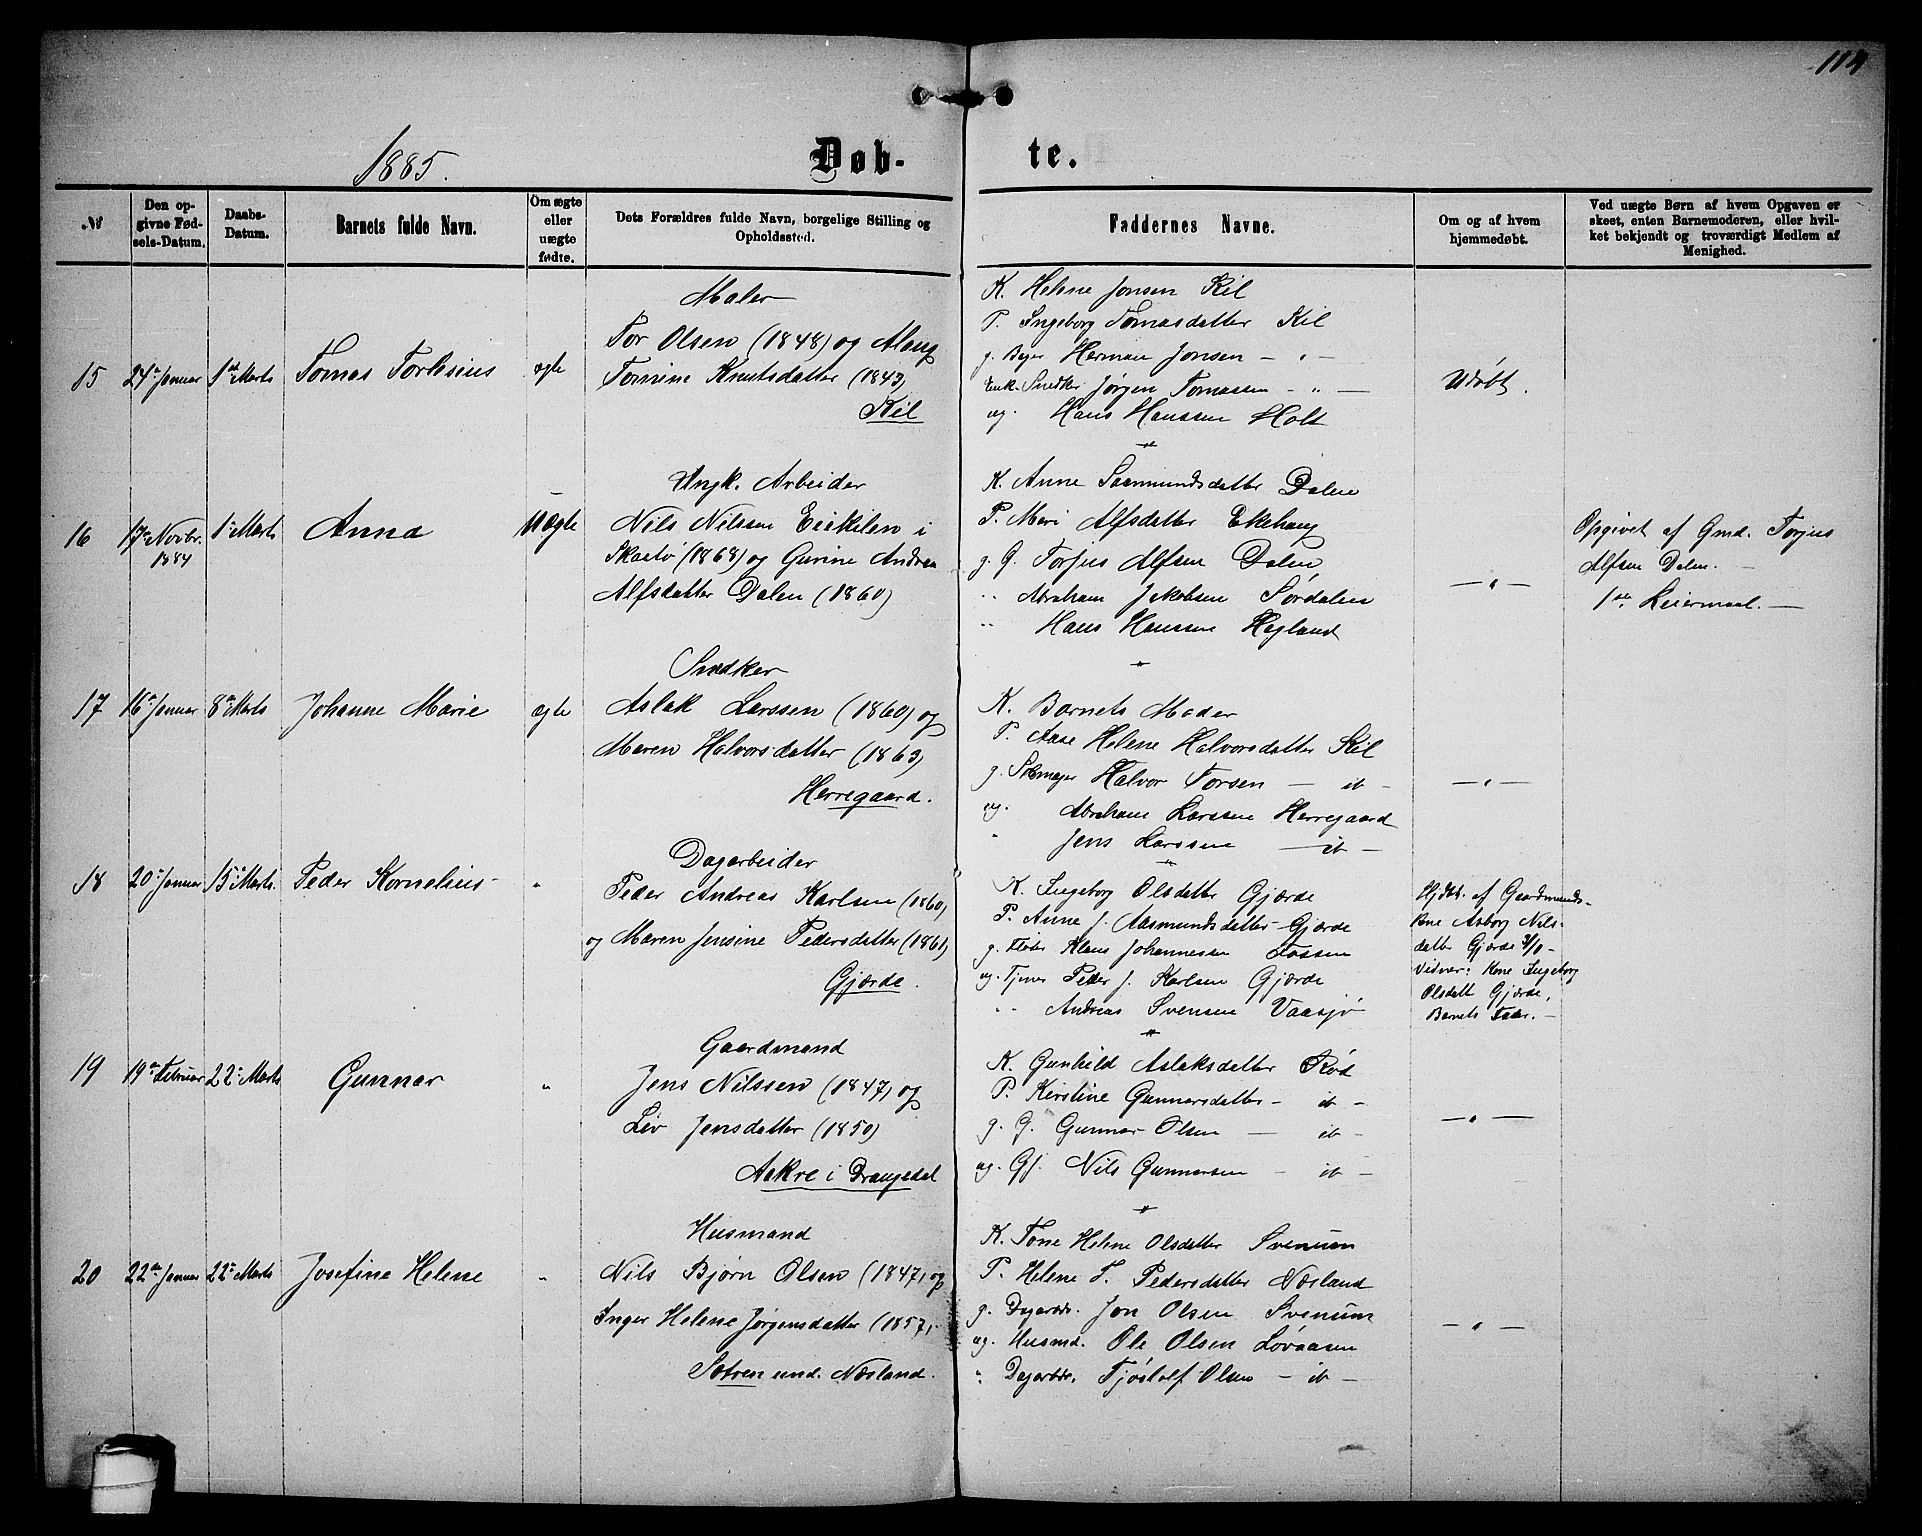 114
1885.
Døb-
te.
№
Den opgivne Fødsels-Datum.
Daabs-Datum.
Barnets fulde Navn.
Om ægte eller uægte fødte.
Dets Forældres fulde Navn, borgelige Stilling og Opholdssted.
Faddernes Navne.
Om og af hvem hjemmedøbt.
Ved uægte Børn af hvem Opgaven er skeet, enten Barnemoderen, eller hvilket bekjendt og troværdigt Medlem af Menighed.
15 24de Januar 1ste Marts Tomas Torlesius ægte
Maler
Tor Olsen (1848) og Aleug
Tomine Knutsdatter (1843)
Kil
K. Helene Jonsen Kil
P. Ingeborg Tomasdatter Kil
g. Herman Jonsen - " -
Enk. Snedker Jørgen Tomassen - " -
ug. Hans Hanssen Holt
Udøbt.
16 17de Novbr. 1884 1ste Marts Anna Uægte
Ungk. Arbeider
Nils Nilssen Eirikilen i
Skaatø (1868) og Gurine Andrea
Alfsdatter Dalen (1860)
K. Anne Saamundsdatter Dalen
P. Mari Alfsdatter Ekehaug
g. G. Torjus Alfsen Dalen
" Abraham Jakobsen Sørdalen
" Hans Hanssen Høgland
- " -
Opgivet af Gmd. Torjus
Alfsen Dalen. -
1ste Leiermaal. -
17 16de Januar 8de Marts Johanne Marie ægte
Snedker
Aslak Larssen (1860) og
Maren Halvorsdatter (1863)
Herregaard.
K. Barnets Moder
P. Aase Helene Halvorsdatter Kil
g. Skomager Halvor Torsen - it -
ug. Abraham Larssen Herregaard
" Jens Larssen - it -
- " -
18 20de Januar 15de Marts. Peder Kornelius "
Dagarbeider
Peder Andreas Karlsen (1860)
og Maren Jensine Pedersdatter (1861)
Gjærde.
K. Ingeborg Olsdatter Gjærde
P. Anne J. Aasmundsdatter - Gjærde
g. Klaus Johannessen Fossen
ug. Tjener Peder J. Karlsen Gjærde
" Andreas Svensen Vaasjø
Hjdbt. af Gaardmands-
kone Asborg Nils-
datter Gjærde
Vidner: Kone Ingeborg
Olsdatt Gjærde,
Barnets Fader. -
19 19de Februar 22de Marts Gunnar "
Gaardmand
Jens Nilssen (1847) og
Liv Jensdatter (1850)
Aakre i Drangedal
K. Gunhild Aslaksdatter Rød
P. Kirstine Gunnarsdatter - it -
g. G. Gunnar Olsen - it -
ug. Gf. Nils Gunnarsen - it -
- " -
20 22de Januar 22de Marts Josefine Helene "
Husmand
Nils Bjørn Olsen (1847) og
Inger Helene Jørgensdatter (1857)
Sætren und. Næsland.
K. Tone Helene Olsdatter Svenum
P. Helene T. Pedersdatter Næsland
g. Dagarbdr. Jon Olsen Svenum
ug. Husmd. Ole Olsen Løvaasen
" Dagarbdr. Tjøstolf Olsen - it -
- " -